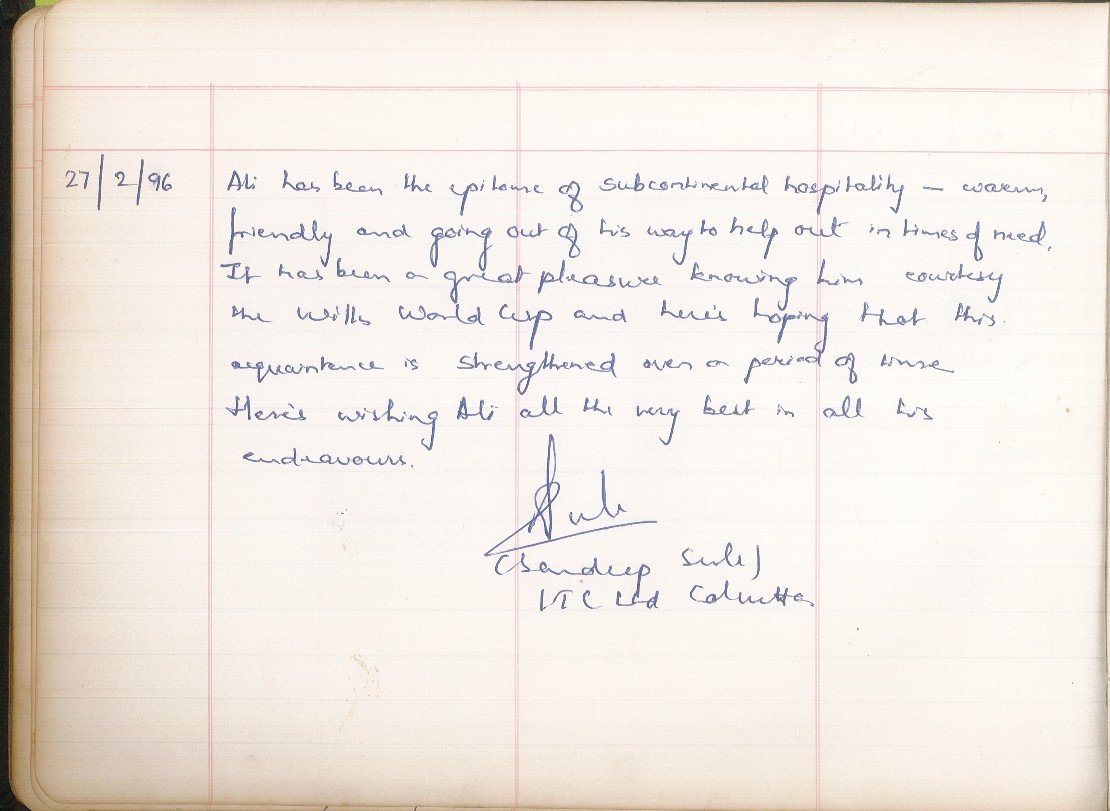 27/2/96 Ali has been the epitome of subcontinental hospitality – warm,
friendly and going out of his way to help out in times of need.
It has been a great pleasure knowing him courtesy
the Wills World Cup and here's hoping that this
acquaintence is strengthened over a period of time
Here's wishing Ali all the very best in all his
endeavours.
(Sandeep Sule)
ITC Ltd Calcutta